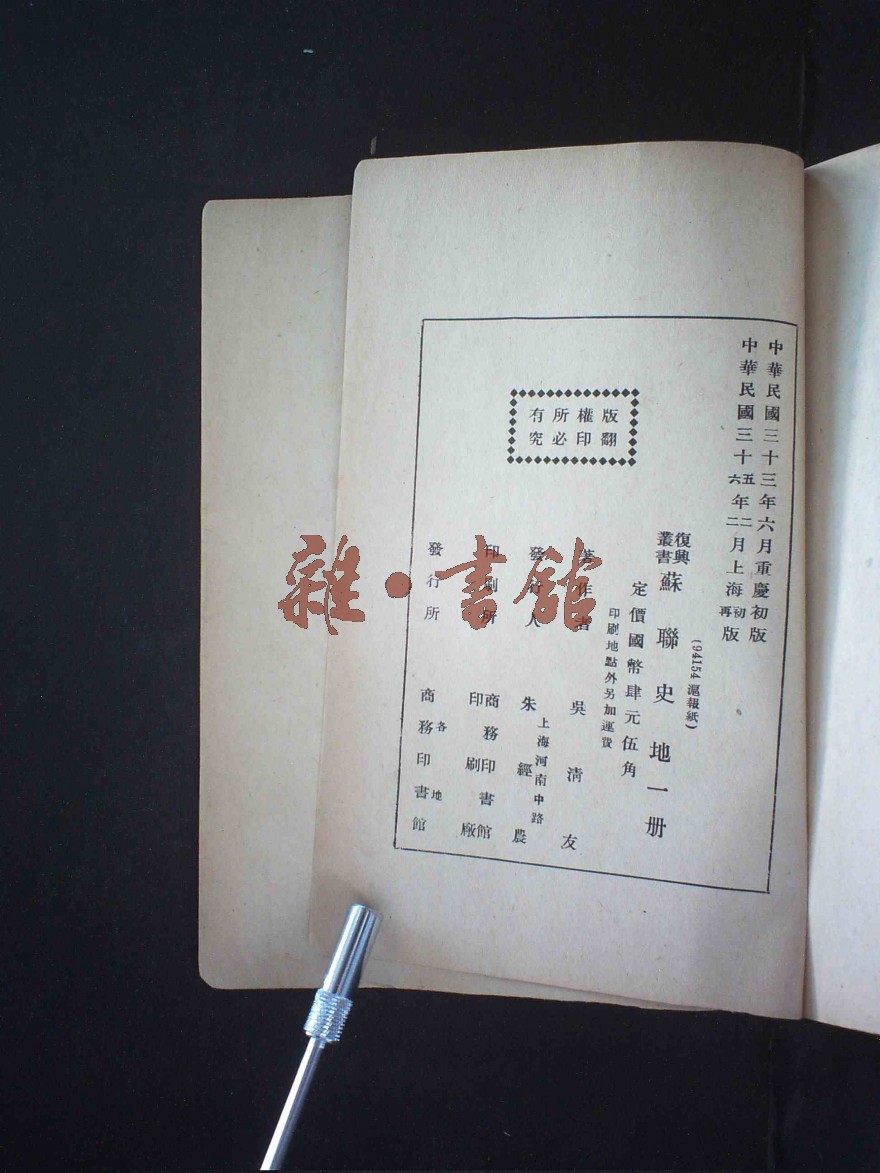 中華民國三十三年六月重慶初版
中華民國三十五六年二二月上海初再版
(94154 滬報紙)
復興叢書 蘇聯史地一册
定價國幣肆元伍角
印刷地點外另加運費
版權所有
翻印必究
著作者 吳清友
發行人 朱經農
上海河南中路
印刷所 商務印書館印刷廠
發行所 各地商務印書館
雜·書館